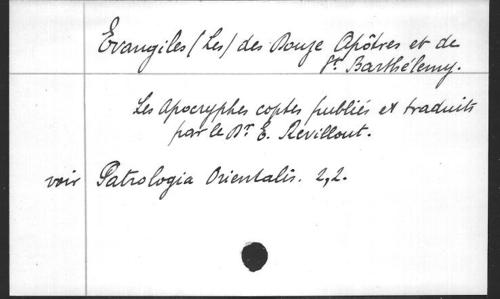 Evangiles (Les) des Douze Apôtres et de
St. Barthélemy.
Les Apocryphes coptes publiés et traduits
par le Dr. E. Revillout.
voir Patrologia Orientalis. 2,2.